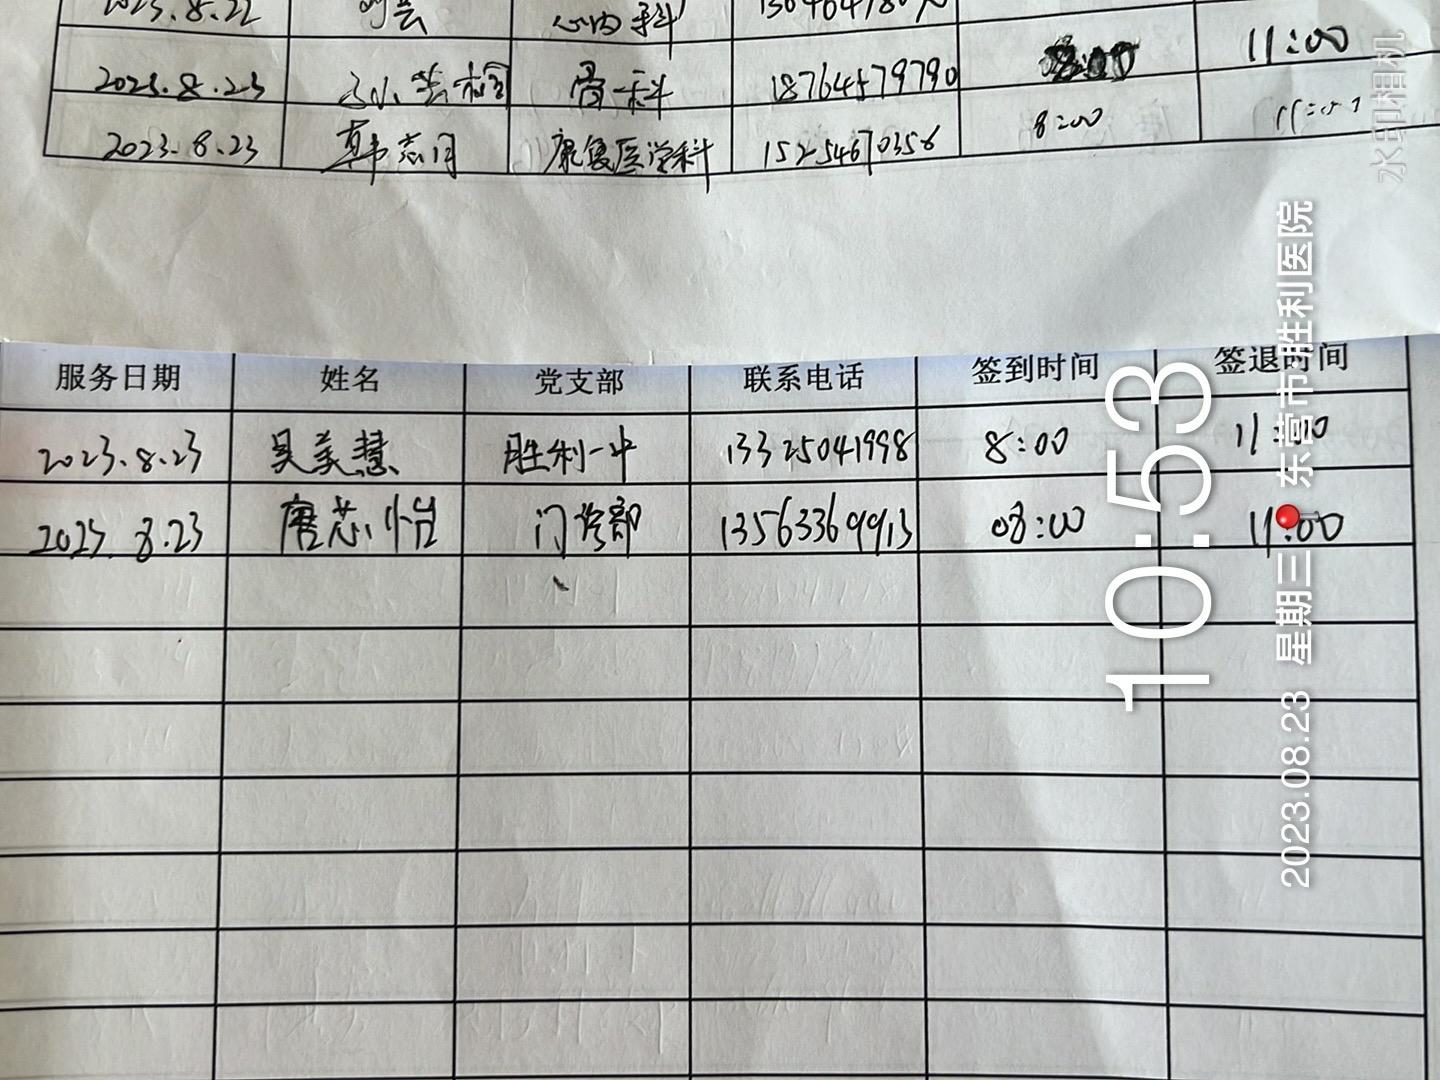 2023.8.22 心内科
2023.8.23 骨科 18764579790 8:00 11:00
2023.8.23 韩志同 康复医学科 15254670356 8:00 11:00
服务日期 姓名 党支部 联系电话 签到时间 签退时间
2023.8.23 吴美慧 胜利一中 13325041998 8:00 11:00
2023.8.23 唐芯怡 门诊部 13563369913 08:00 11:00
10:53
2023.08.23 星期三 东营市胜利医院
水印相机